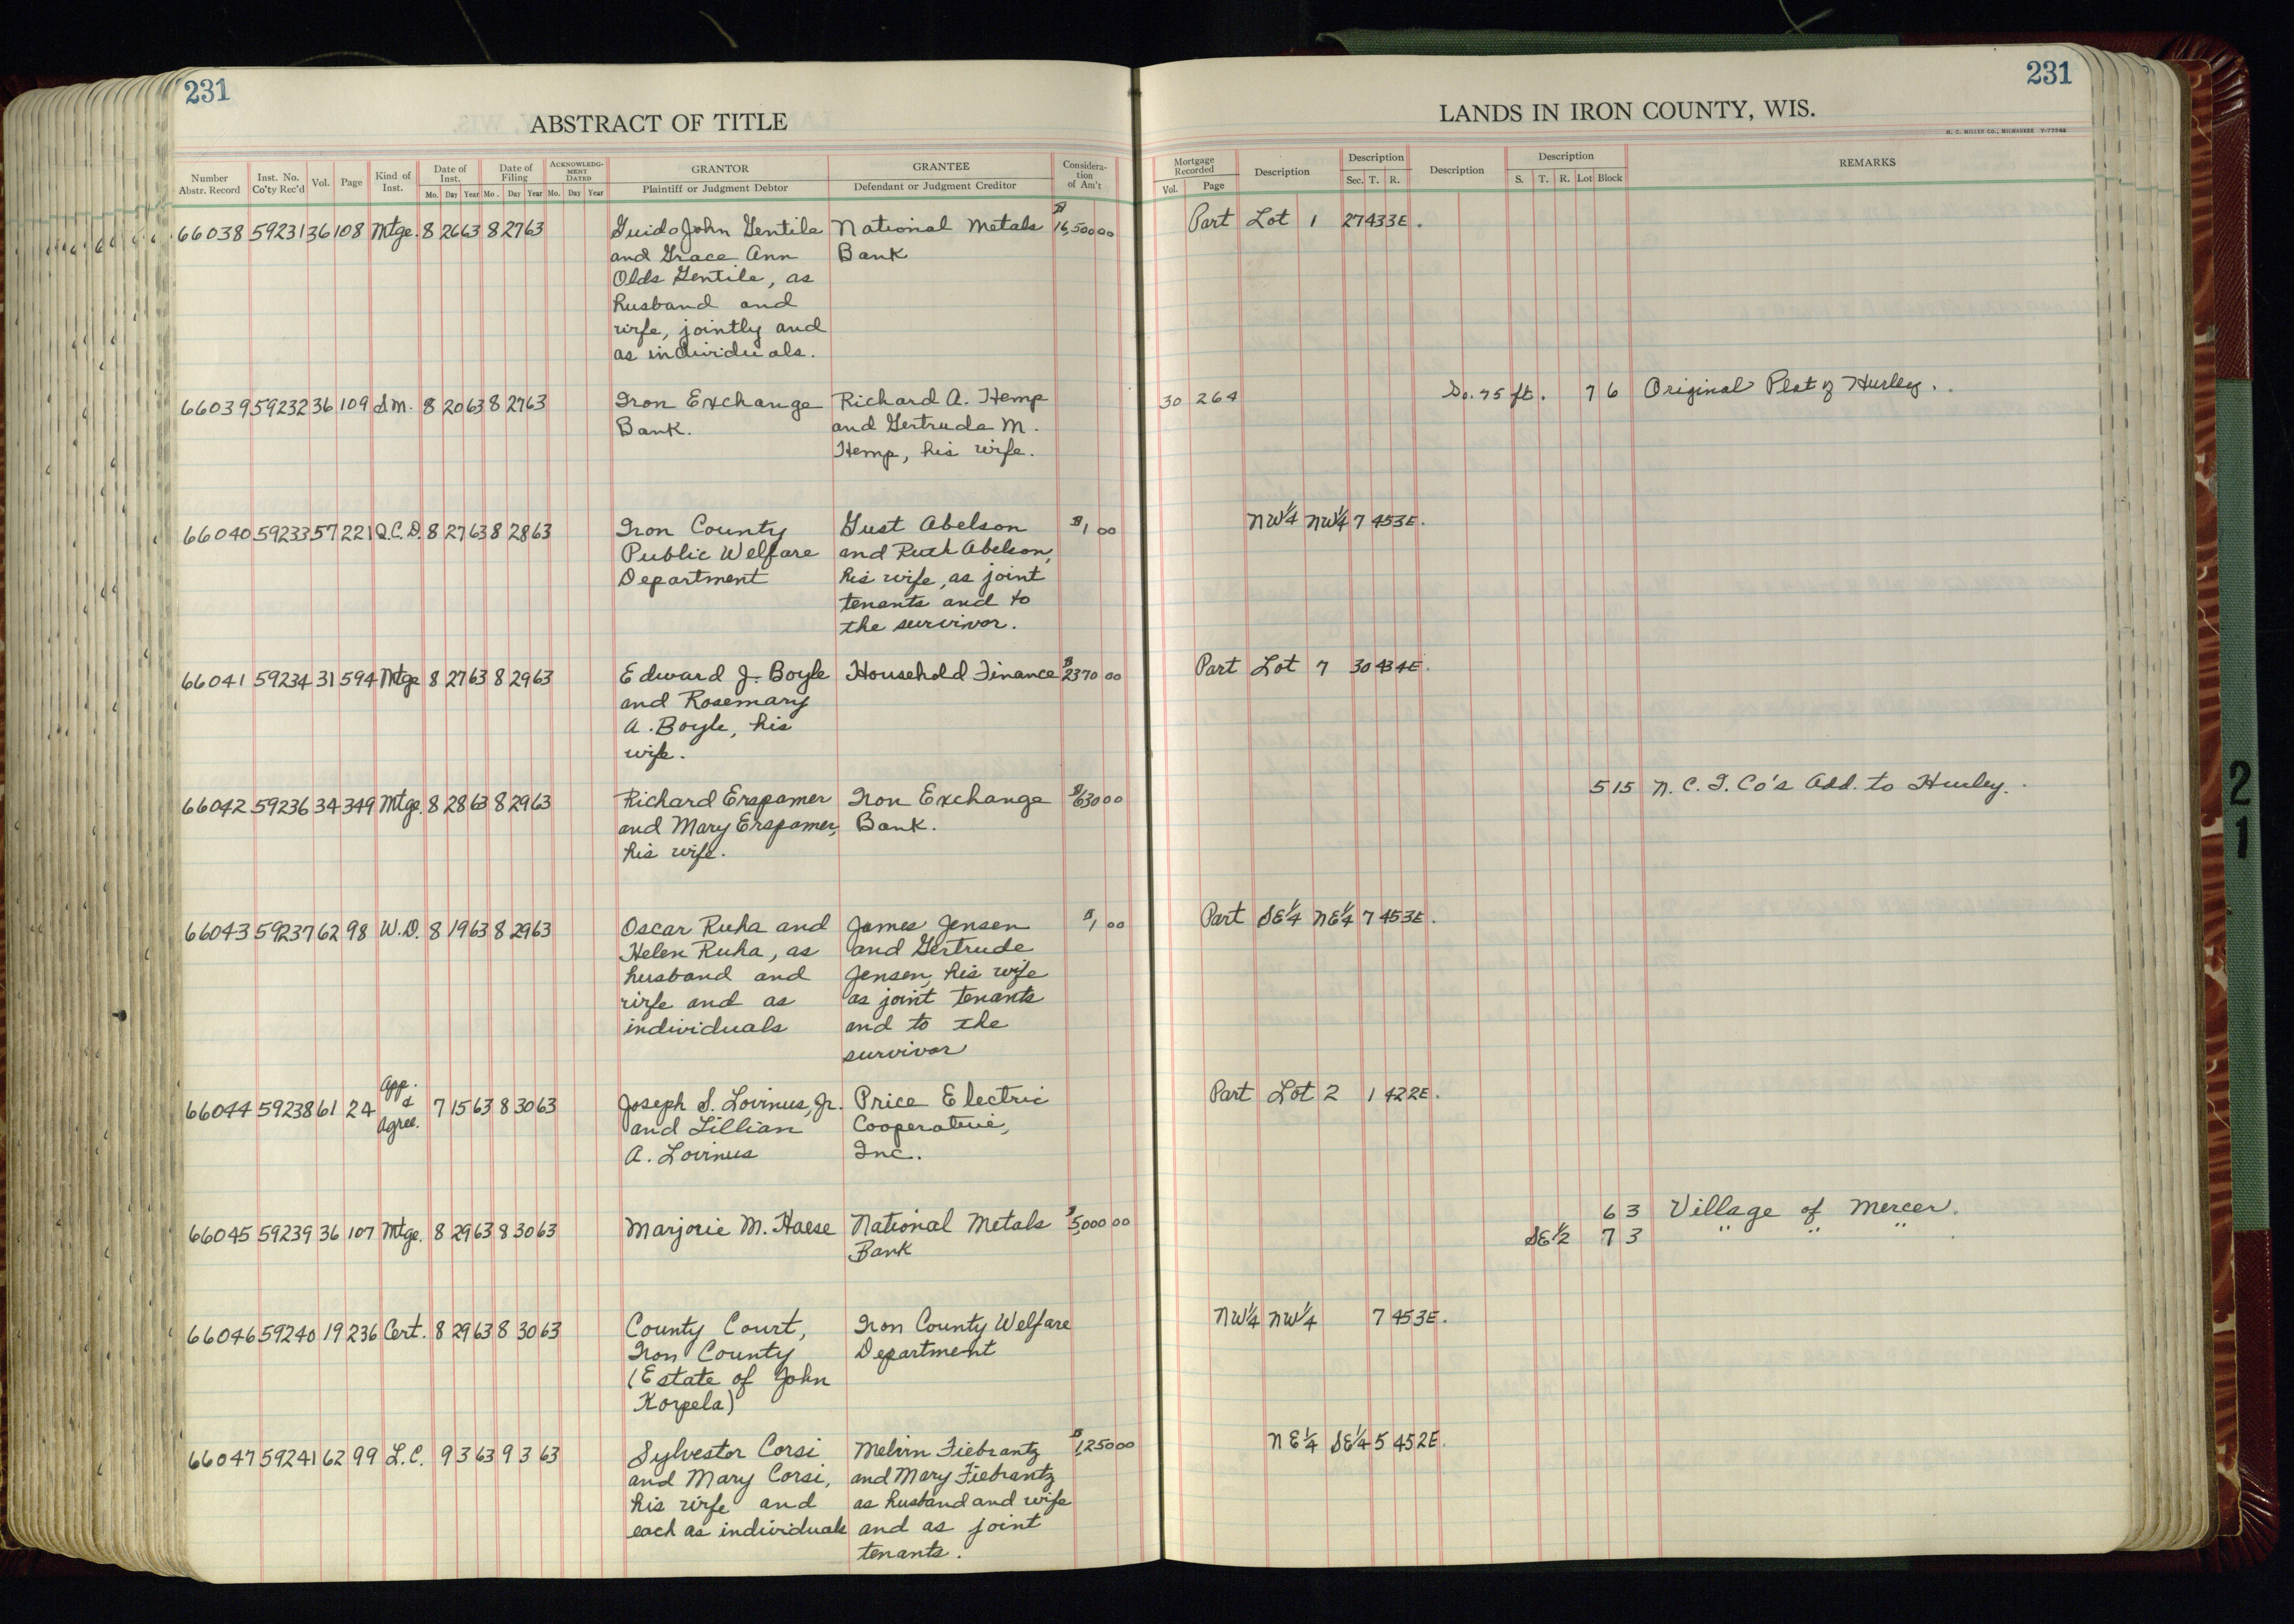 231
231
ABSTRACT OF TITLE
LANDS IN IRON COUNTY, WIS.
H. C. MILLER CO., MILWAUKEE
Number Abstr. Record Inst. No. Co'ty Rec'd Vol. Page Kind of Inst. Date of Inst. Mo. Day Year Date of Filing Mo. Day Year ACKNOWLEDGMENT DATED Mo. Day Year GRANTOR Plaintiff or Judgment Debtor GRANTEE Defendant or Judgment Creditor Consideration of Am't
Mortgage Recorded Vol. Page Description Description Sec. T. R. Description Description S. T. R. Lot Block REMARKS
66038 59231 36 108 Mtge. 8 26 63 8 27 63 Guido John Gentile National Metals $16,500 00 Part Lot 1 27 43 3E.
and Grace Ann Bank
Olds Gentile, as
husband and
wife, jointly and
as individuals.
66039 59232 36 109 Sm. 8 20 63 8 27 63 Iron Exchange Richard A. Hemp 30 264 So. 75 ft. 7 6 Original Plat of Hurley.
Bank. and Gertrude M.
Hemp, his wife.
66040 59233 57 221 Q.C.D. 8 27 63 8 28 63 Iron County Gust Abelson $1 00 NW¼ NW¼ 7 45 3E.
Public Welfare and Ruth Abelson,
Department his wife, as joint
tenants and to
the survivor.
66041 59234 31 594 Mtge 8 27 63 8 29 63 Edward J. Boyle Household Finance $2370 00 Part Lot 7 30 43 4E.
and Rosemary
A. Boyle, his
wife.
66042 59236 34 349 Mtge. 8 28 63 8 29 63 Richard Erspamer Iron Exchange $1630 00 5 15 N. C. I. Co's Add. to Hurley.
and Mary Erspamer, Bank.
his wife.
66043 59237 62 98 W.D. 8 19 63 8 29 63 Oscar Ruha and James Jensen $1 00 Part SE¼ NE¼ 7 45 3E.
Helen Ruha, as and Gertrude
husband and Jensen, his wife
wife and as as joint tenants
individuals and to the
survivor
66044 59238 61 24 App. & Agree. 7 15 63 8 30 63 Joseph S. Lovinus, Jr. Price Electric Part Lot 2 1 42 2E.
and Lillian Cooperative,
A. Lovinus Inc.
66045 59239 36 107 Mtge. 8 29 63 8 30 63 Marjorie M. Haese National Metals $5,000 00 6 3 Village of Mercer.
Bank SE½ 7 3 " " "
66046 59240 19 236 Cert. 8 29 63 8 30 63 County Court, Iron County Welfare NW¼ NW¼ 7 45 3E.
Iron County Department
(Estate of John
Korpela)
66047 59241 62 99 L.C. 9 3 63 9 3 63 Sylvester Corsi Melvin Fiebrantz $1,250 00 NE¼ SE¼ 5 45 2E.
and Mary Corsi, and Mary Fiebrantz
his wife and as husband and wife
each as individuals and as joint
tenants.
21